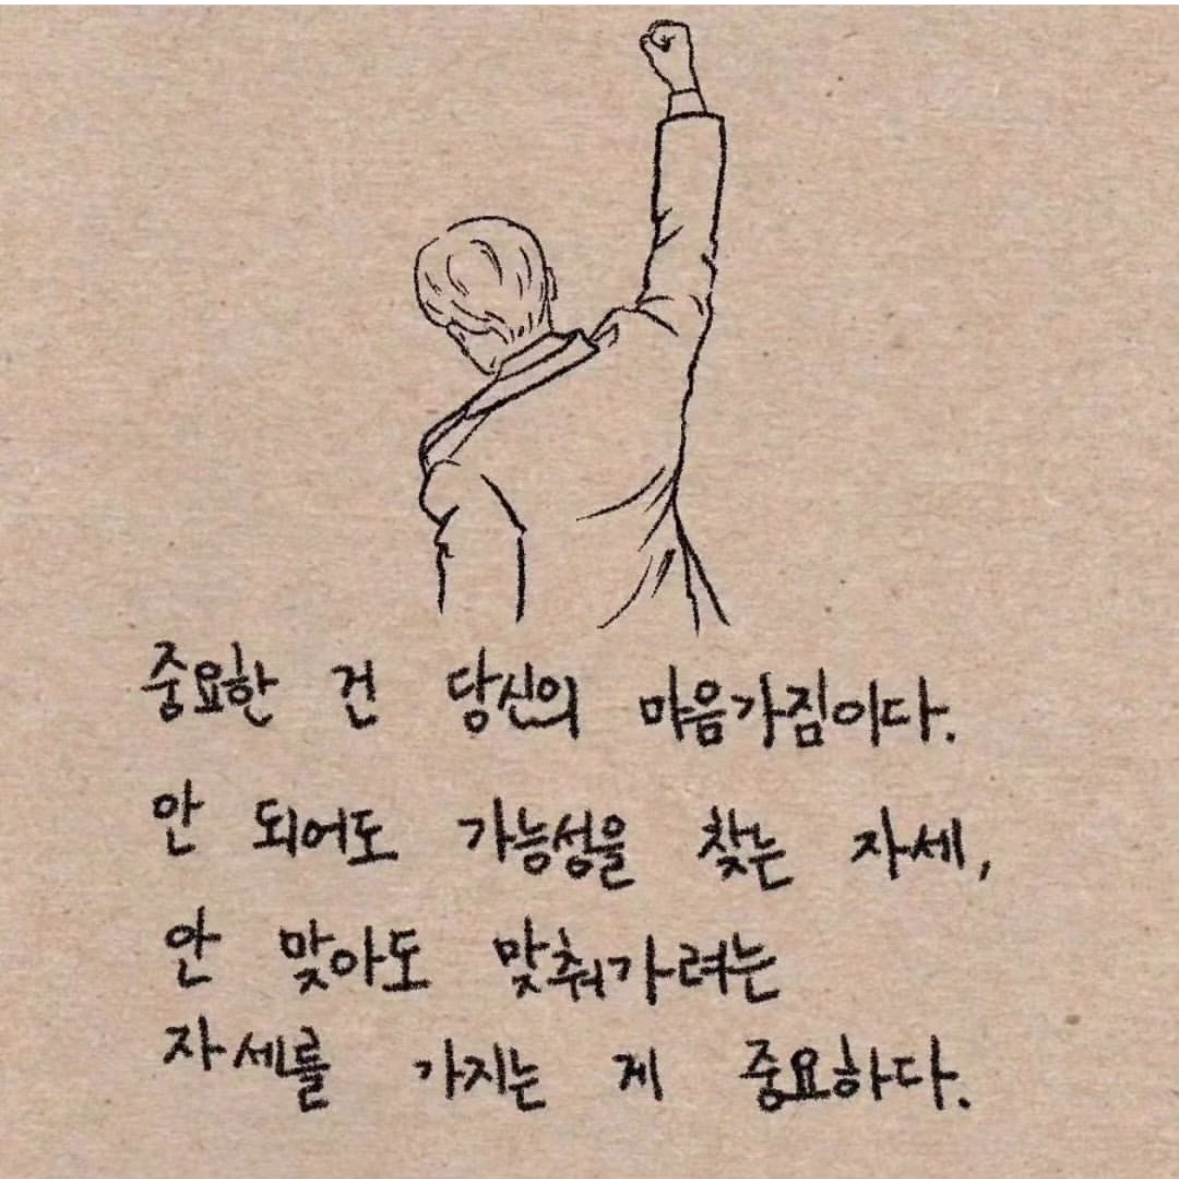 중요한 건 당신의 마음가짐이다.
안 되어도 가능성을 찾는 자세,
안 맞아도 맞춰가려는
자세를 가지는 게 중요하다.